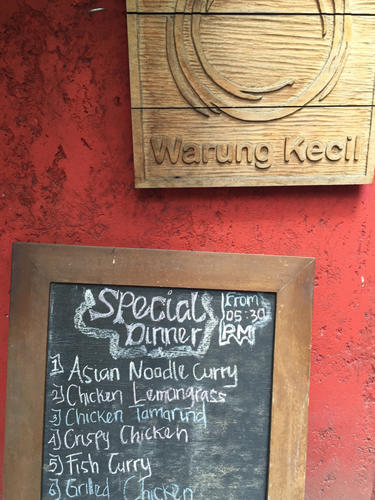 Warung Kecil
Special Dinner
From 05:30 PM
1) Asian Noodle Curry
2) Chicken Lemongrass
3) Chicken Tamarind
4) Crispy Chicken
5) Fish Curry
6) Grilled Chicken